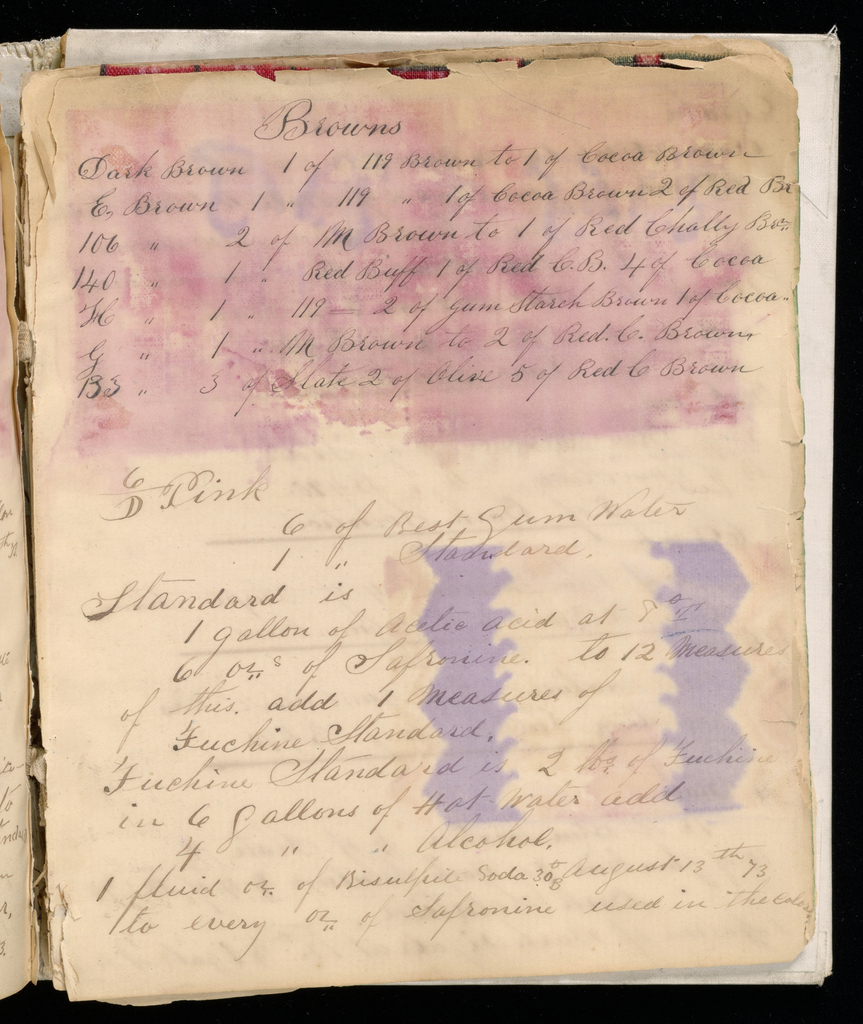 Browns
Dark Brown 1 of 119 Brown to 1 of Cocoa Brown
E, Brown 1 " 119 " 1 of Cocoa Brown 2 of Red Br
106 " 2 of M Brown to 1 of Red Chally Brn
140 " 1 " Red Buff 1 of Red C.B. 4 of Cocoa
H " 1 " 119 — 2 of Gum Starch Brown 1 of Cocoa.
G " 1 " M Brown to 2 of Red. C. Brown,
B3 " 3 of Slate 2 of Olive 5 of Red C Brown
6/D Pink
6 of Best Gum Water
1 " Standard.
Standard is
1 gallon of Acetic acid at 8° T
6 ozs of Safronine. to 12 Measures
of this. add 1 Measures of
Fuchine Standard.
Fuchine Standard is 2 lbs of Fuchine
in 6 gallons of Hot Water add
4 " " Alcohol.
1 fluid oz. of Bisulpite Soda 30 August 13th 73
to every oz of Safronine used in the color